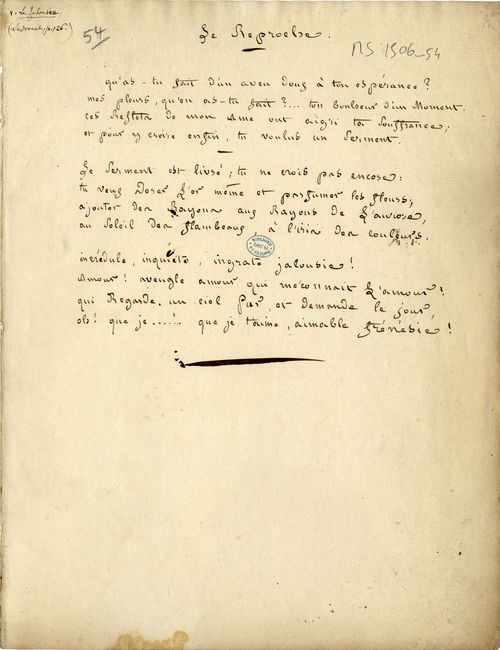 v. La Jalousie,
(Ladvocat, p. 126.)
54
Le Reproche.
MS 1506_54
qu'as-tu fait d'un aveu doux à ton espérance ?
mes pleurs, qu'en as-tu fait ?... ton bonheur d'un Moment.
ces Reflets de mon ame ont aigri ta souffrance,
et pour y croire enfin, tu voulus un serment.
Le serment est livré ; tu ne crois pas encore :
tu veux dorer L'or même et parfumer les fleurs ;
ajouter des Rayons aux Rayons de L'aurore,
au soleil des flambeaux, à l'iris des couleurs.
incrédule, inquiète, ingrate jalousie !
Amour ! aveugle amour qui méconnait L'amour !
qui Regarde un ciel pur, et demande le jour,
oh ! que je .....! que je t'aime, aimable frénésie !